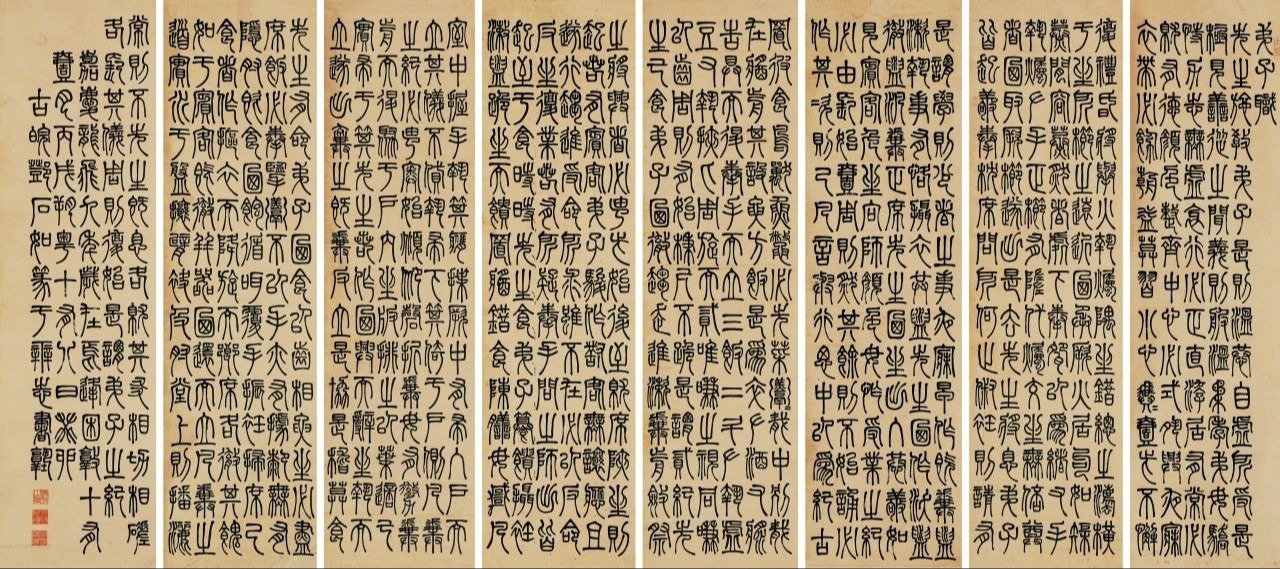 弟子職
先生施教弟子是則溫恭自虛所受是
極見善從之聞義則服溫柔孝弟毋驕
恃力志無虛衺行必正直游居有常必
就有德顏色整齊中心必式夙興夜寐
衣帶必飭朝益莫習小心翼翼壹此不解
復禮昏將舉火執燭隅坐錯總之灋橫
于坐所櫛之遠近乃承厥火居句如矩
蒸閒容蒸然者處下奉椀以為緒右手
執燭左手正櫛有墮代燭交坐毋倍尊
者乃取厥櫛遂出是去先生將息弟子
皆起敬奉枕席問所何止俶衽則請有
是謂學則少者之事夜寐早作既拚盥
漱執事有恪攝衣共盥先生乃作沃盥
徹盥汎拚正席先生乃坐出入恭敬如
見賓客危坐向師顏色毋怍受業之紀
必由長始壹周則然其餘則否始誦必
作其次則已凡言與行思中以為紀古
之將興者必由此始後至就席陜坐則
起若有賓客弟子駿作對客無讓應且
遂行趨進受命所求雖不在必以反命
反坐復業若有所疑奉手問之師出皆
起至于食時先生將食弟子饌饋攝衽
漱盥跪坐而饋置醬錯食陳膳毋悖凡
置彼食鳥獸魚鱉必先菜羹羹胾中別胾
在醬前其設要方飯是為卒左酒右醬
告具而退奉手而立三飯二斗左執虛
豆右執挾匕周還而貳唯嗛之視同嗛
以齒周則有始柄尺不跪是謂貳紀先
生已食弟子乃徹趨走進漱拚前斂祭
先生有命弟子乃食以齒相要坐必盡
席飯必奉擥羹不以手亦有據膝無有
隱肘既食乃飽循咡覆手振衽掃席已
食者作摳衣而降旋而鄉席各徹其餽
如于賓客既徹并器乃還而立凡拚之
道實水于盤攘臂袂及肘堂上則播灑
室中握手執箕膺揲厥中有帚入戶而
立其儀不貸執帚下箕倚于戶側凡拚
之紀必由奧始俯仰磬折拚毋有徹拚
前而退聚于戶內坐板排之以葉適己
實帚于箕先生若作乃興而辭坐執而
立遂出棄之既拚反立是協是稽莫食
常則不先生既息各就其友相切相磋
各長其儀周則復始是謂弟子之紀
嘉慶龍飛九年歲在焉逢困敦十有
壹月丙戌朔粵十有八日癸卯
古皖鄧石如篆于辨志書屋